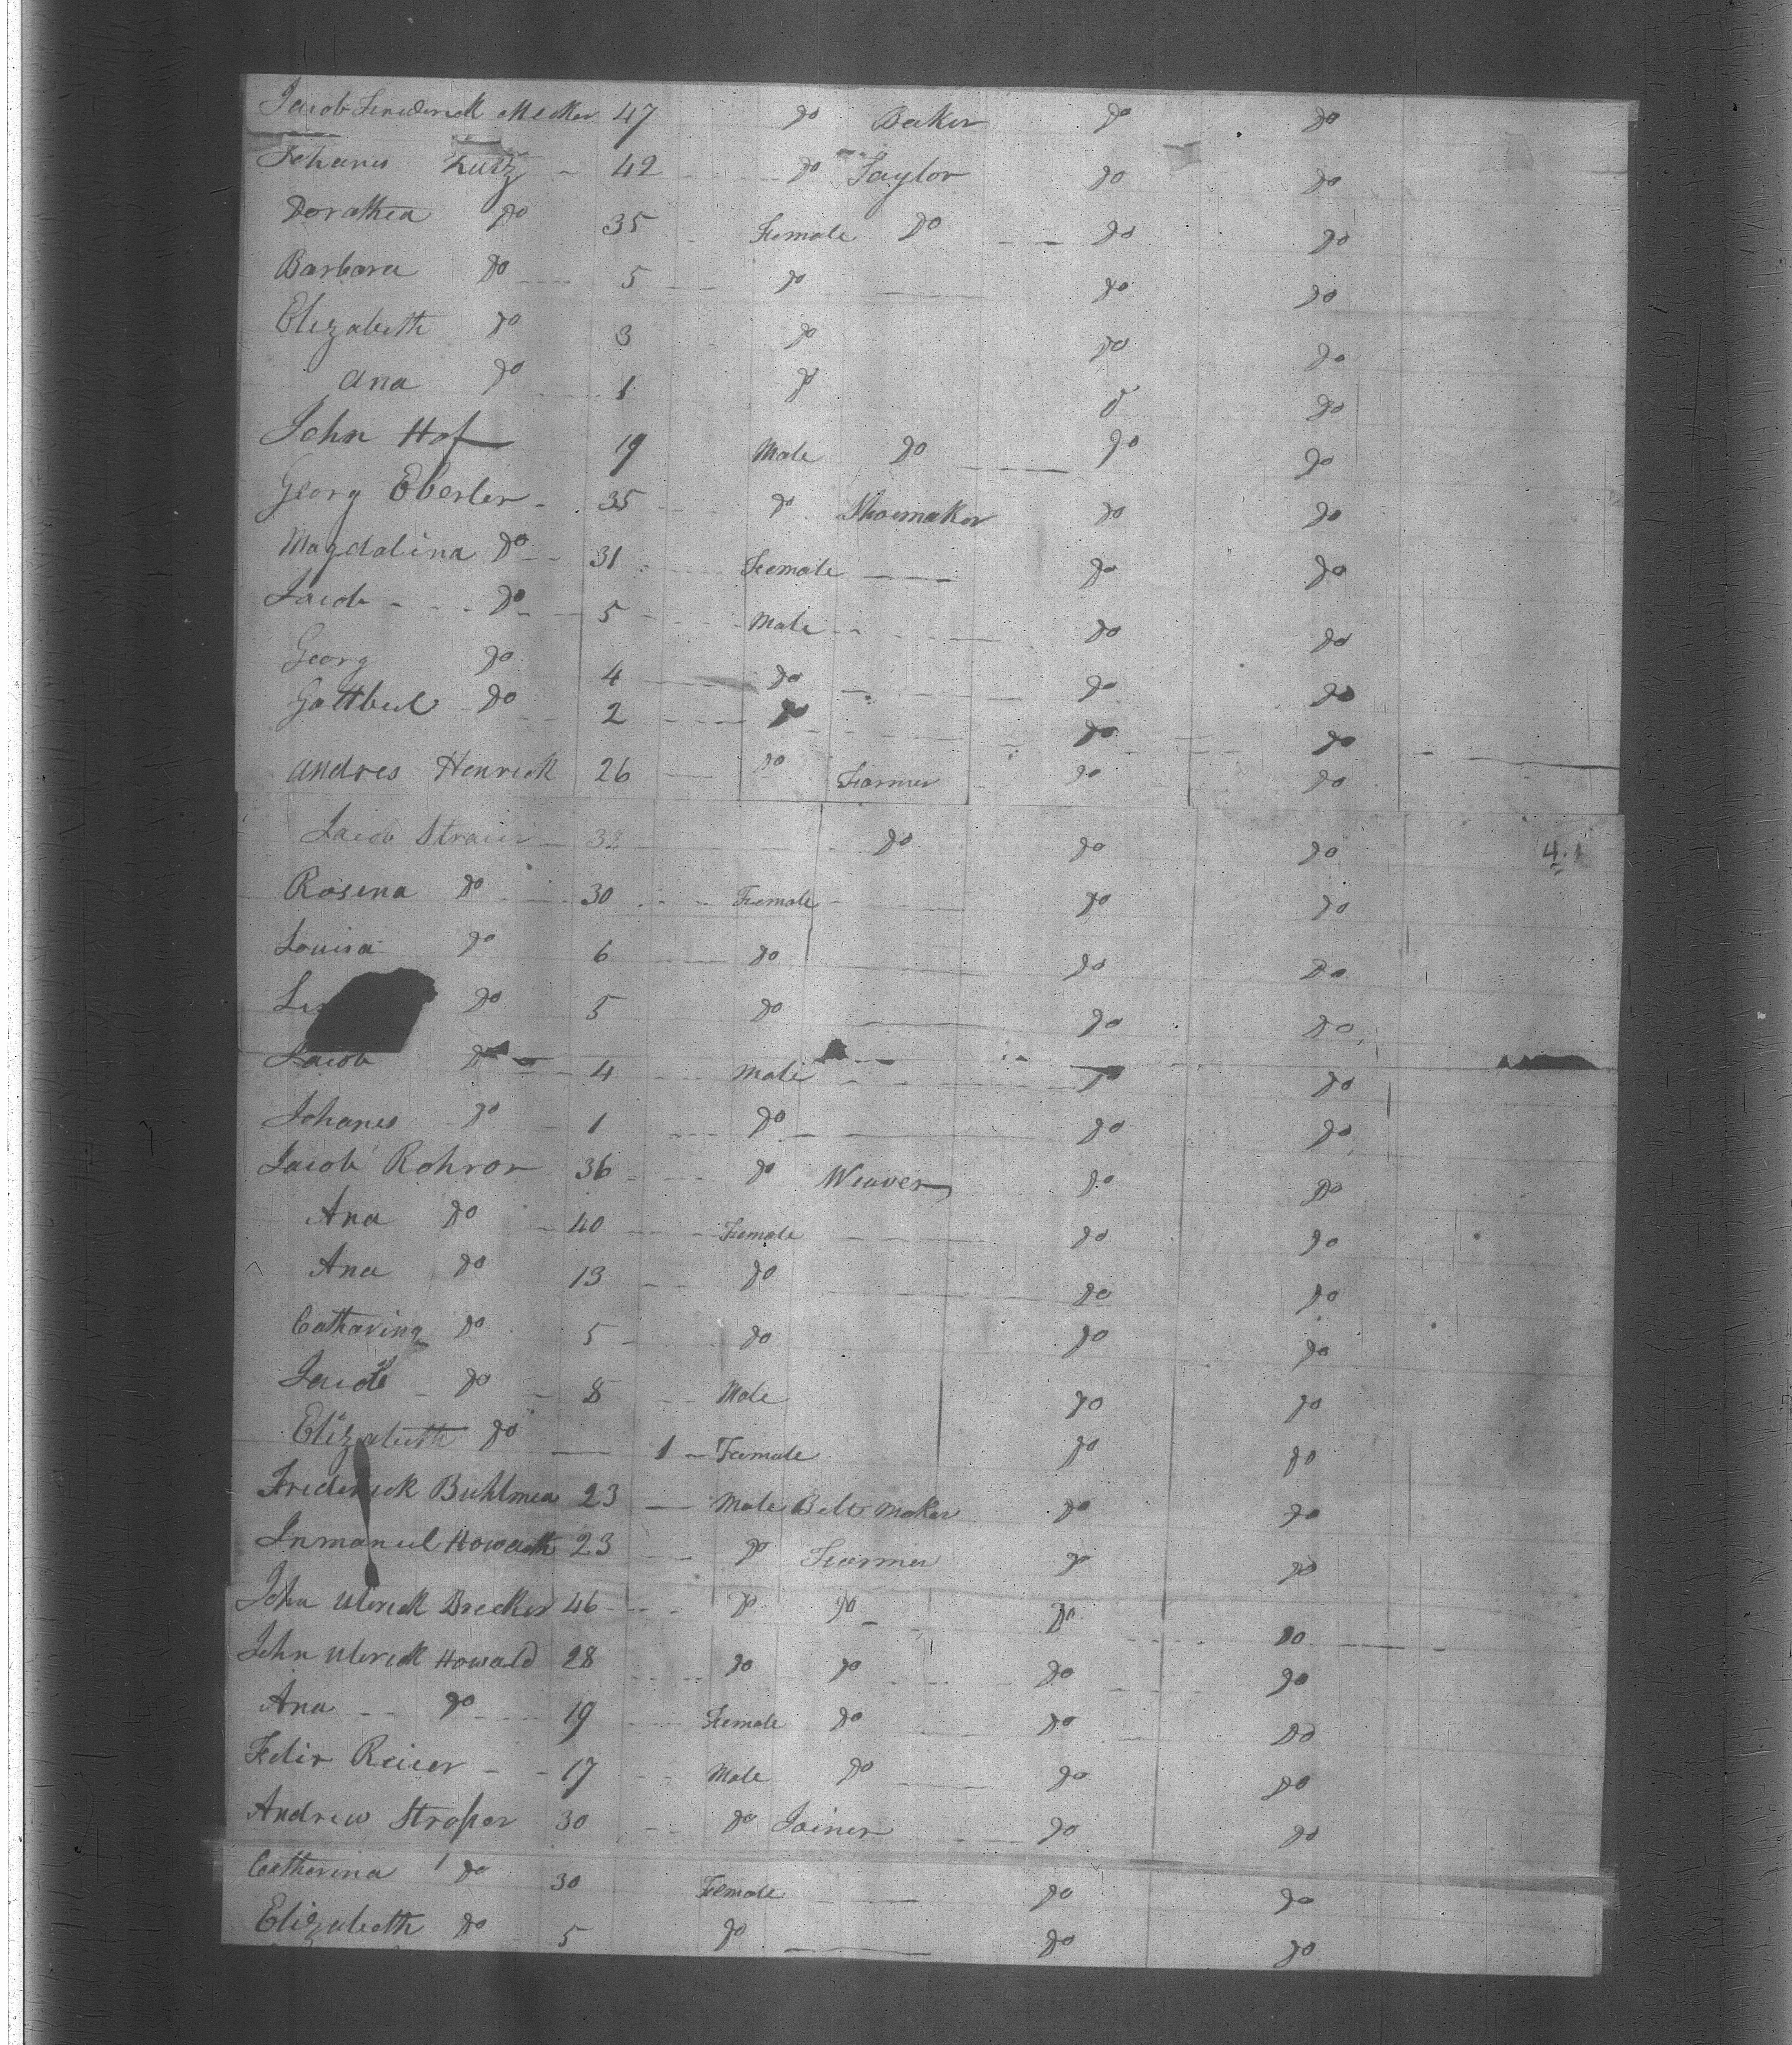 Jacob Frederick Mecker 47 do Baker do do
Johans Lutz 42 do Taylor do do
Dorathea do 35 Female do do do
Barbara do 5 do do do
Elizabeth do 3 do do do
Ana do 1 do do do
John Hof 19 Male do do do
Georg Eberler 35 do Shoemaker do do
Magdalina do 31 Female do do
Jacob do 5 Male do do
Georg do 4 do do do
Gottlieb do 2 do do do
Andres Henrick 26 do Farmer do do
Jacob Straier 32 do do do
4.1
Rosina do 30 Female do do
Louisa do 6 do do do
do 5 do do do
Jacob do 4 Male do do
Johanes do 1 do do do
Jacob Rohror 36 do Weaver do do
Ana do 40 Female do do
Ana do 13 do do do
Catharina do 5 do do do
Jacob do 8 Male do do
Elizabeth do 1 Female do do
Frederick Buhlmea 23 Male Belt Maker do do
Inmanuel Howath 23 do Farmer do do
John Ulerick Brecker 46 do do do do
John Ulerick Howald 28 do do do do
Ana do 19 Female do do do
Felir Reiier 17 Male do do do
Andrew Stroser 30 do Joiner do do
Catherina do 30 Female do do
Elizabeth do 5 do do do